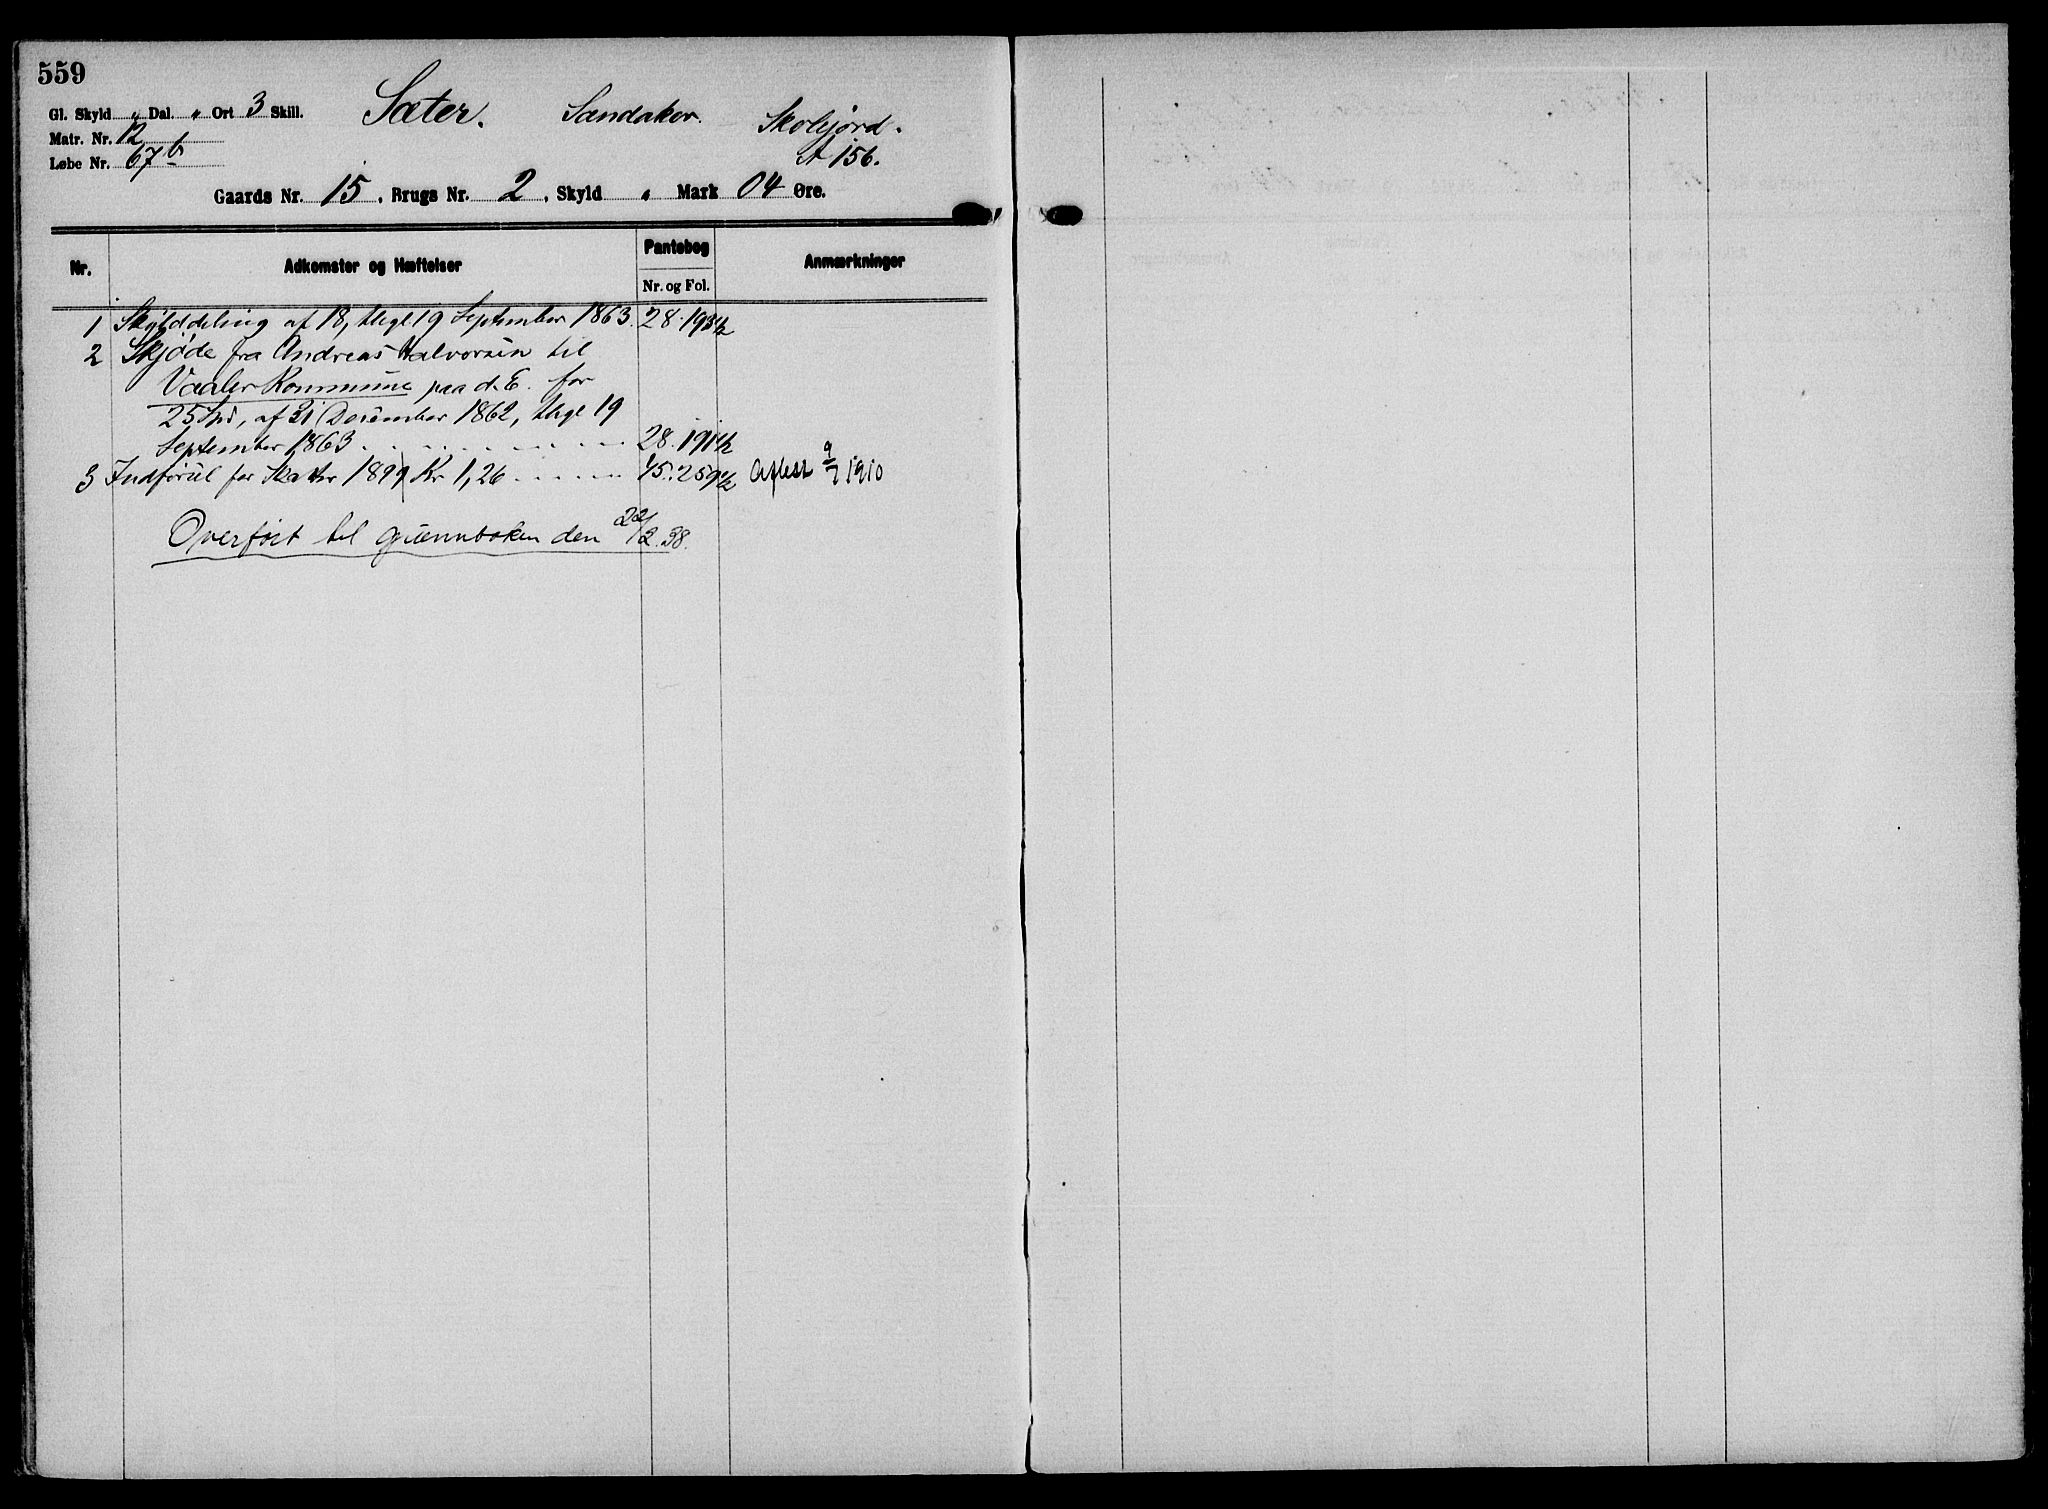 559
Gl. Skyld „ Dal. „ Ort 3 Skill. Sæter. Sandaker. Skolejord.
Matr. Nr. 12
Løbe Nr. 67 b A 156.
Gaards Nr. 15, Brugs Nr. 2, Skyld „ Mark 04 Øre.
Nr. Adkomster og Hæftelser Pantebog Anmærkninger
Nr. og Fol.
1 Skylddeling af 18, thgl 19 September 1863. 28. 193 1/2
2 Skjøde fra Andreas Halvorsen til
Vaaler Kommune paa d. E. for
25 Spd, af 31 December 1862, thgl 19
September 1863 28. 191 1/2
3 Indførsel for Skatter 1899 Kr 1,26 45. 259 1/2 Aflest 9/7 1910
Overført til grunnboken den 22/2.38.